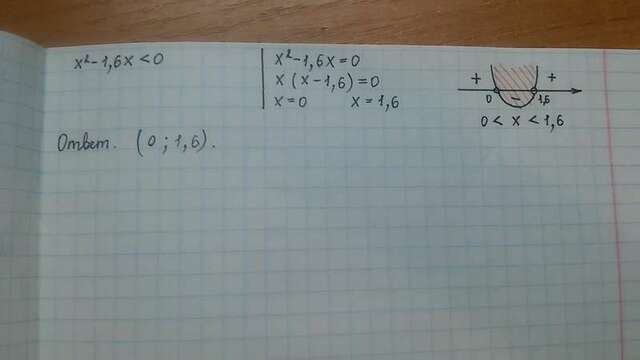 x² - 1,6x < 0
x² - 1,6x = 0
x (x - 1,6) = 0
x = 0 x = 1,6
+ - +
0 1,6
0 < x < 1,6
Ответ. (0 ; 1,6).